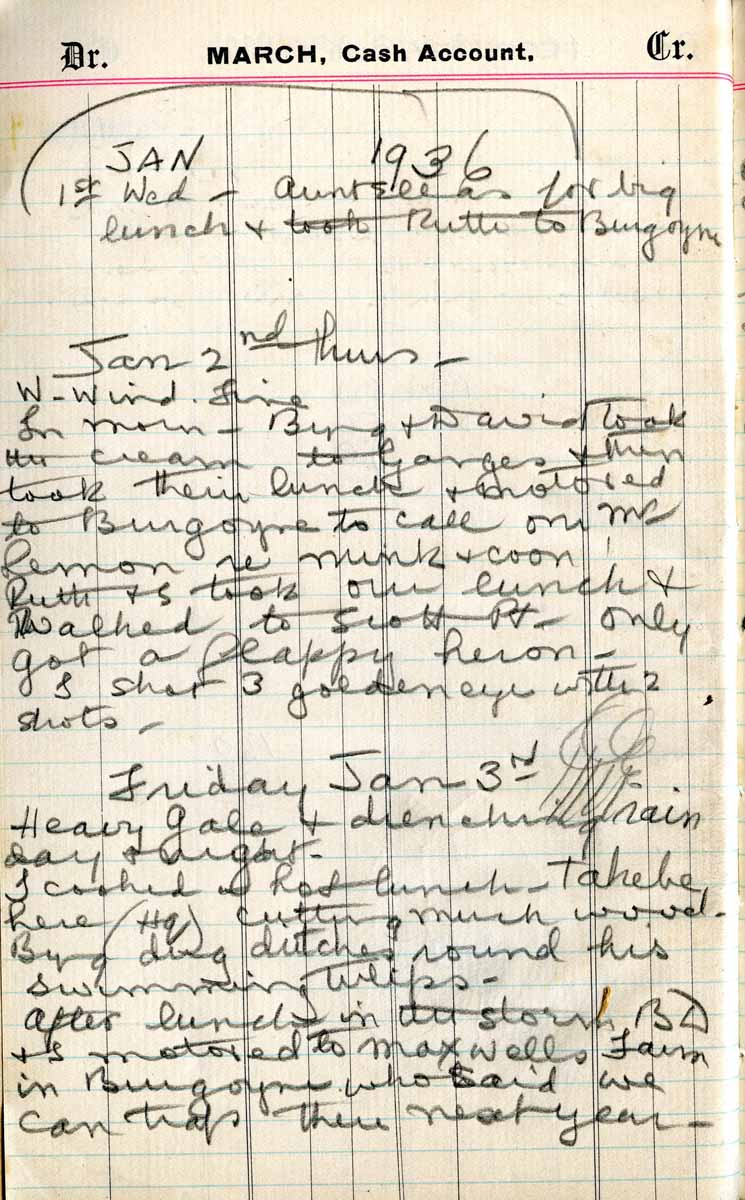 Dr. MARCH, Cash Account. Cr.
JAN 1936
1st Wed - for big
lunch & took Ruth to Burgoyne
Jan 2nd thurs -
W-Wind. Fine
In morn - Byng & David took
the cream to Ganges & then
took their lunch & motored
to Burgoyne to call on Mr
Lemon re mink & coon!
Ruth & I took our lunch &
Walked to Scott Pt - only
got a flappy heron -
I shot 3 goldeneye with 2
shots -
Friday Jan 3rd
Heavy Gale & drenching rain
day & night -
I cooked a hot lunch - Takebe
here (Hq) cutting much wood -
Byng dug ditches round his
swimming tulips -
After lunch in the storm B D
& I motored to Maxwells Farm
in Burgoyne who said we
can trap there next year -